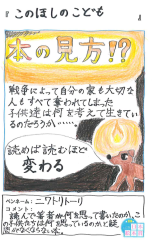 『このほしのこども』
本の見方!?
戦争によって自分の家も大切な
人もすべて奪われてしまった
子供達は何を考えて生きてい
るのだろうか……。
読めば読むほど
変わる
ペンネーム：ニワトリトーリ
コメント：
読んで著者が何を思って書いたのか、こ
の子たちは何を思っているのかと疑